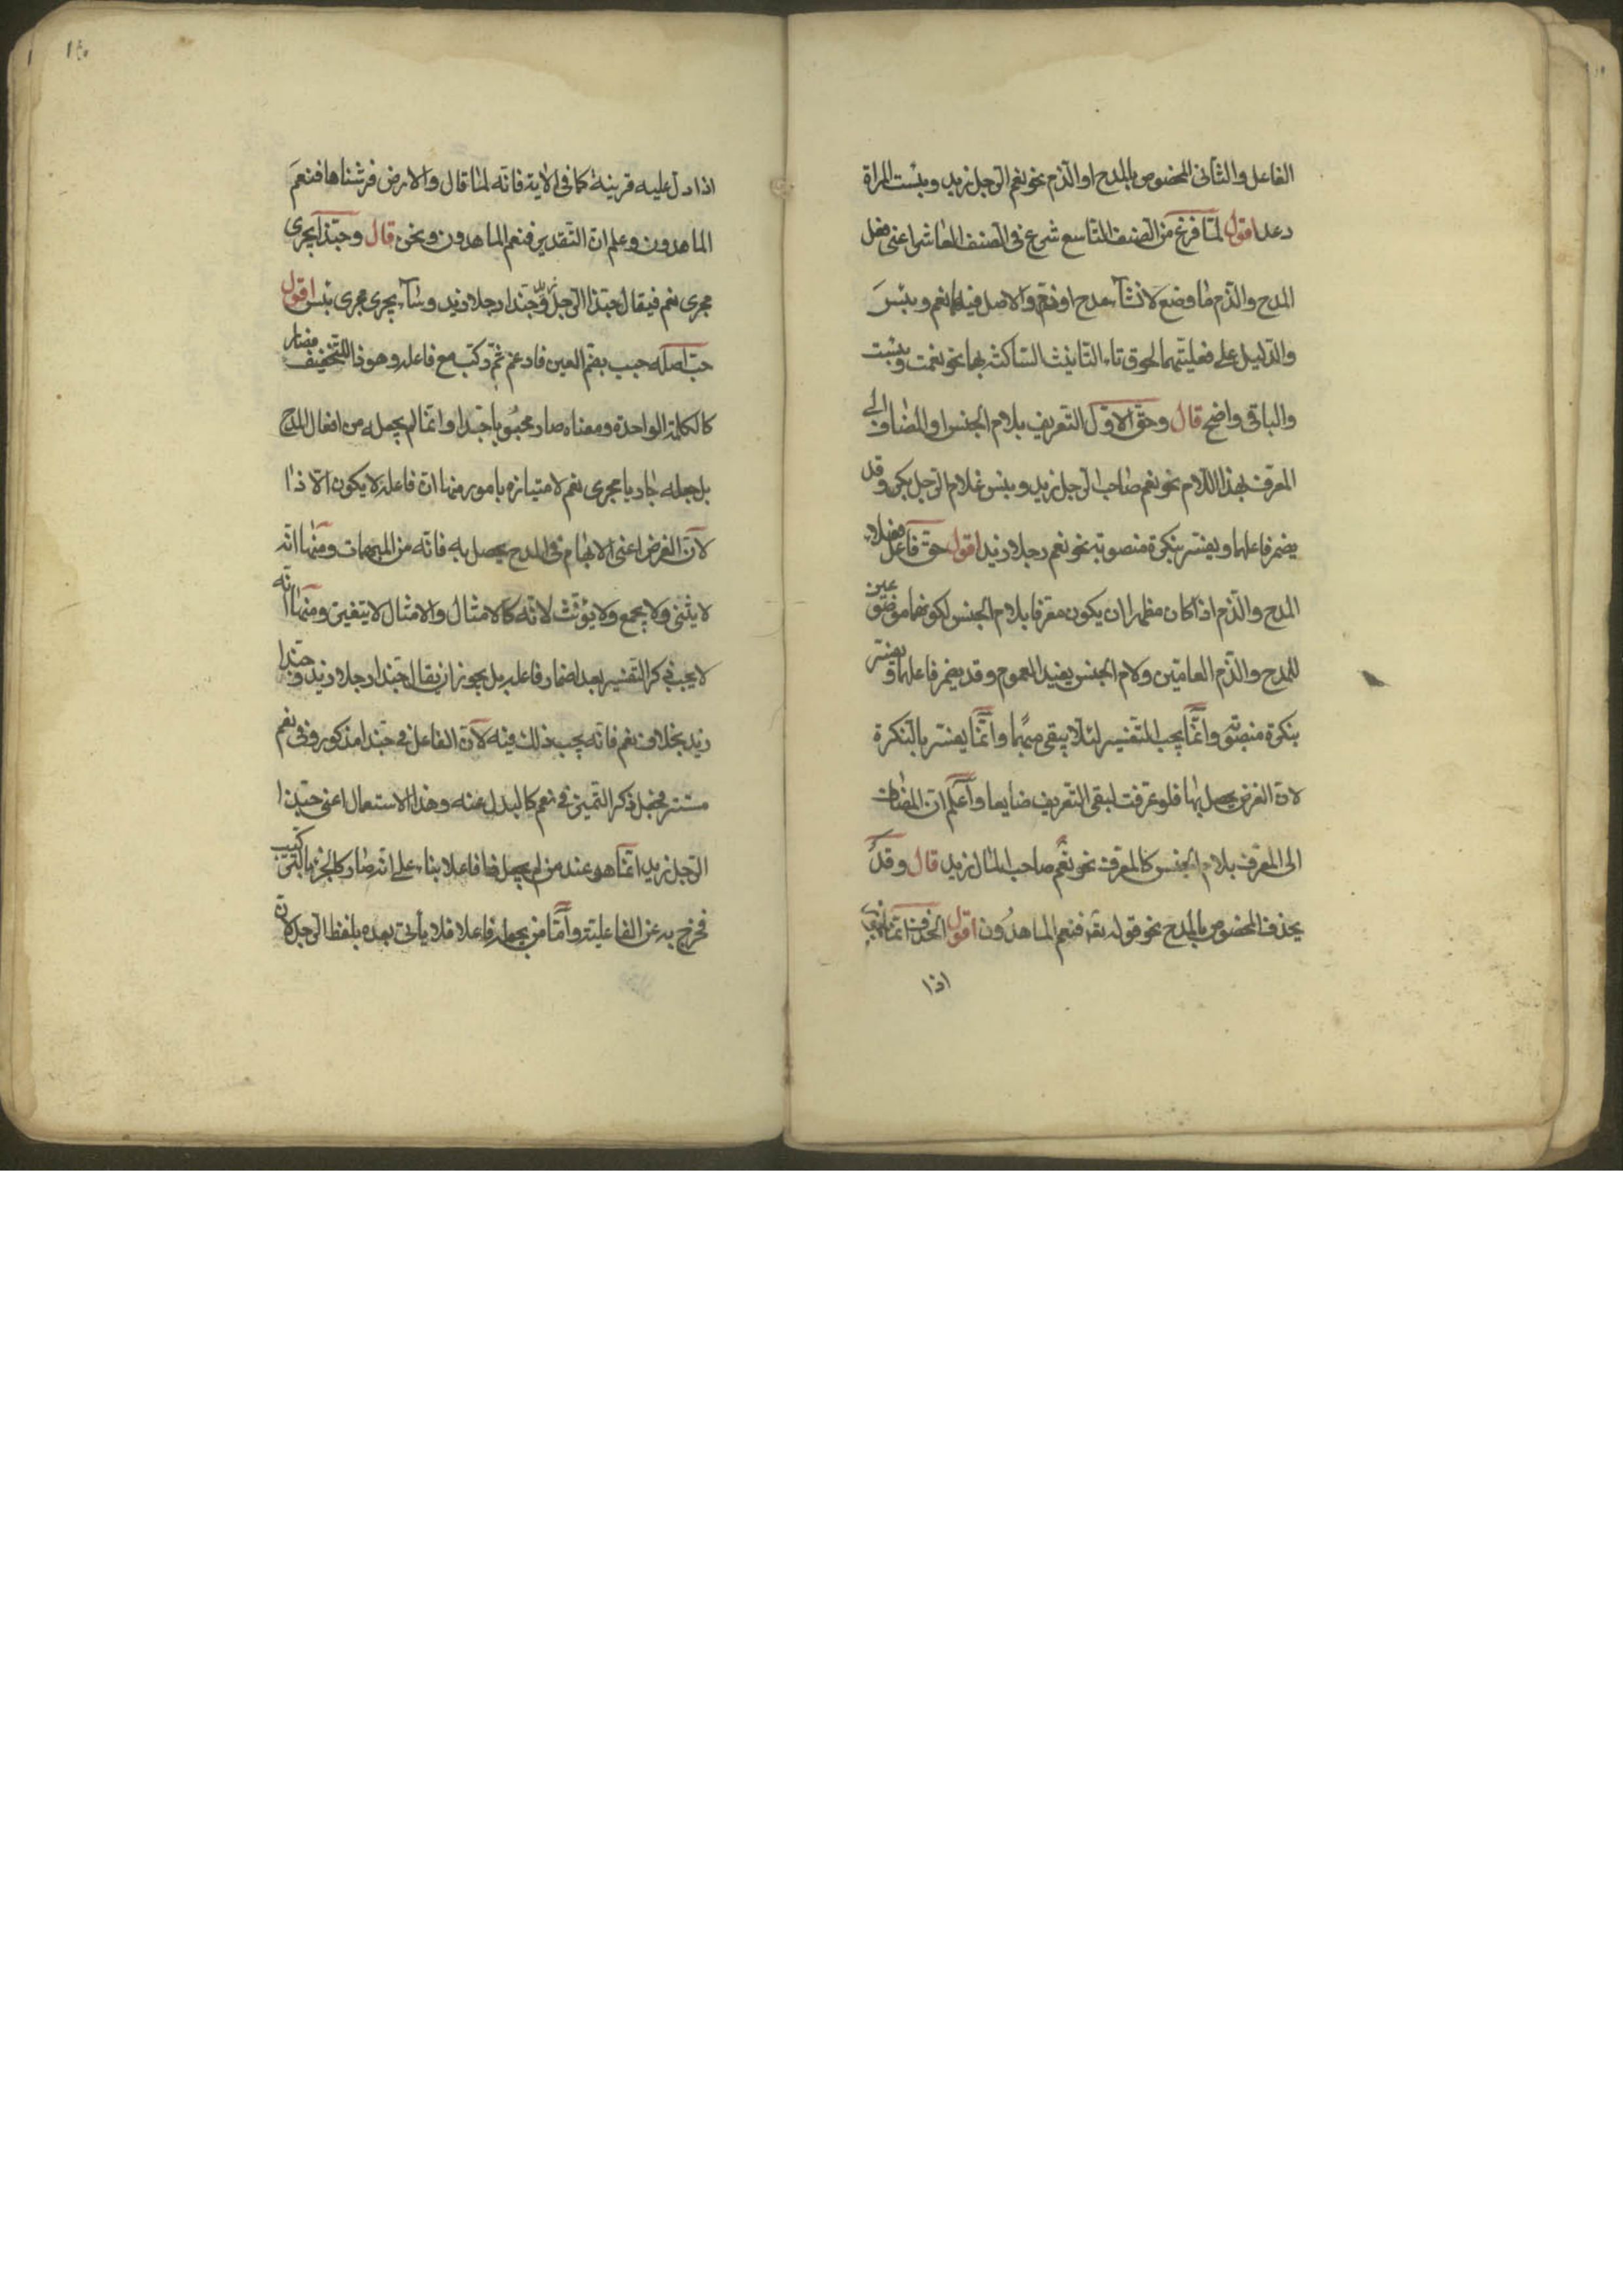 الفاعل والثانى المخصوص بالمدح او الذم نحو نعم الرجل زيد وبئست المراة
دعد اقول لما فرغ من الصنف التاسع شرع فى الصنف العاشر اعنى فعل
المدح والذم ما وضع لانشاء مدح او ذم والاصل فيه نعم وبئس
والدليل على فعليتهما لحوق تاء التانيث الساكنة بهما نحو نعمت وبئست
والباقى واضح قال وحق الاول التعريف بلام الجنس او المضاف الى
المعرف بهذا اللام نحو نعم صاحب الرجل زيد وبئس غلام الرجل بكر وقد
يضمر فاعلهما ويفسر بنكرة منصوبة نحو نعم رجلا زيد اقول حق فاعل فعلا
المدح والذم اذا كان مظهرا ان يكون معرفا بلام الجنس لكونهما موضوعين
للمدح والذم العامتين ولام الجنس يفيد العموم وقد يضمر فاعلهما ويفسر
بنكرة منصوبة وانما يجب التفسير لئلا يبقى مبهما وانما يفسر بالنكرة
لان الغرض يحصل بها فلو عرفت لبقى التعريف ضايعا واعلم ان المضاف
الى المعرف بلام الجنس كالمعرف نحو نعم صاحب المال زيد قال وقد
يحذف المخصوص بالمدح نحو قوله تعه فنعم الماهدون اقول الحذف انما
اذا
١٤٠
اذا دل عليه قرينة كما فى الاية فانه لما قال والارض فرشناها فنعم
الماهدون وعلم ان التقدير فنعم الماهدون ونحن قال وحبذا يجرى
مجرى نعم فيقال حبذا الرجل زيد وحبذا رجلا زيد وساء يجرى مجرى بئس اقول
حب اصله حبب بضم العين فادغم ثم ركب مع فاعله وهو ذا للتخفيف فصار
كالكلمة الواحدة ومعناه صار محبوبا حبذا وانما لم يجعله من افعال المدح
بل جعله جاريا مجرى نعم لامتيازه بامور منها ان فاعله لا يكون الا ذا
لان الغرض اعنى الابهام فى المدح يحصل به فانه من المبهمات ومنها انه
لا يثنى ولا يجمع ولا يؤنث لانه كالامثال والامثال لا يتغير ومنها انه
لا يجب ذكر التفسير بعد اضمار فاعله بل يجوز ان يقال حبذا رجلا زيد وحبذا
زيد بخلاف نعم فانه يجب ذلك فيه لان الفاعل فى حبذا مذكور وفى نعم
مستتر فجعل ذكر التميز فى نعم كالبدل عنه وهذا الاستعمال اعنى حبذا
الرجل زيد انما هو عند من لم يجعل ذا فاعلا بناء على انه صار كالجزء بالتركيب
فخرج به عن الفاعلية واما من يجعله فاعلا فلا يأتى بعده بلفظ الرجل لان